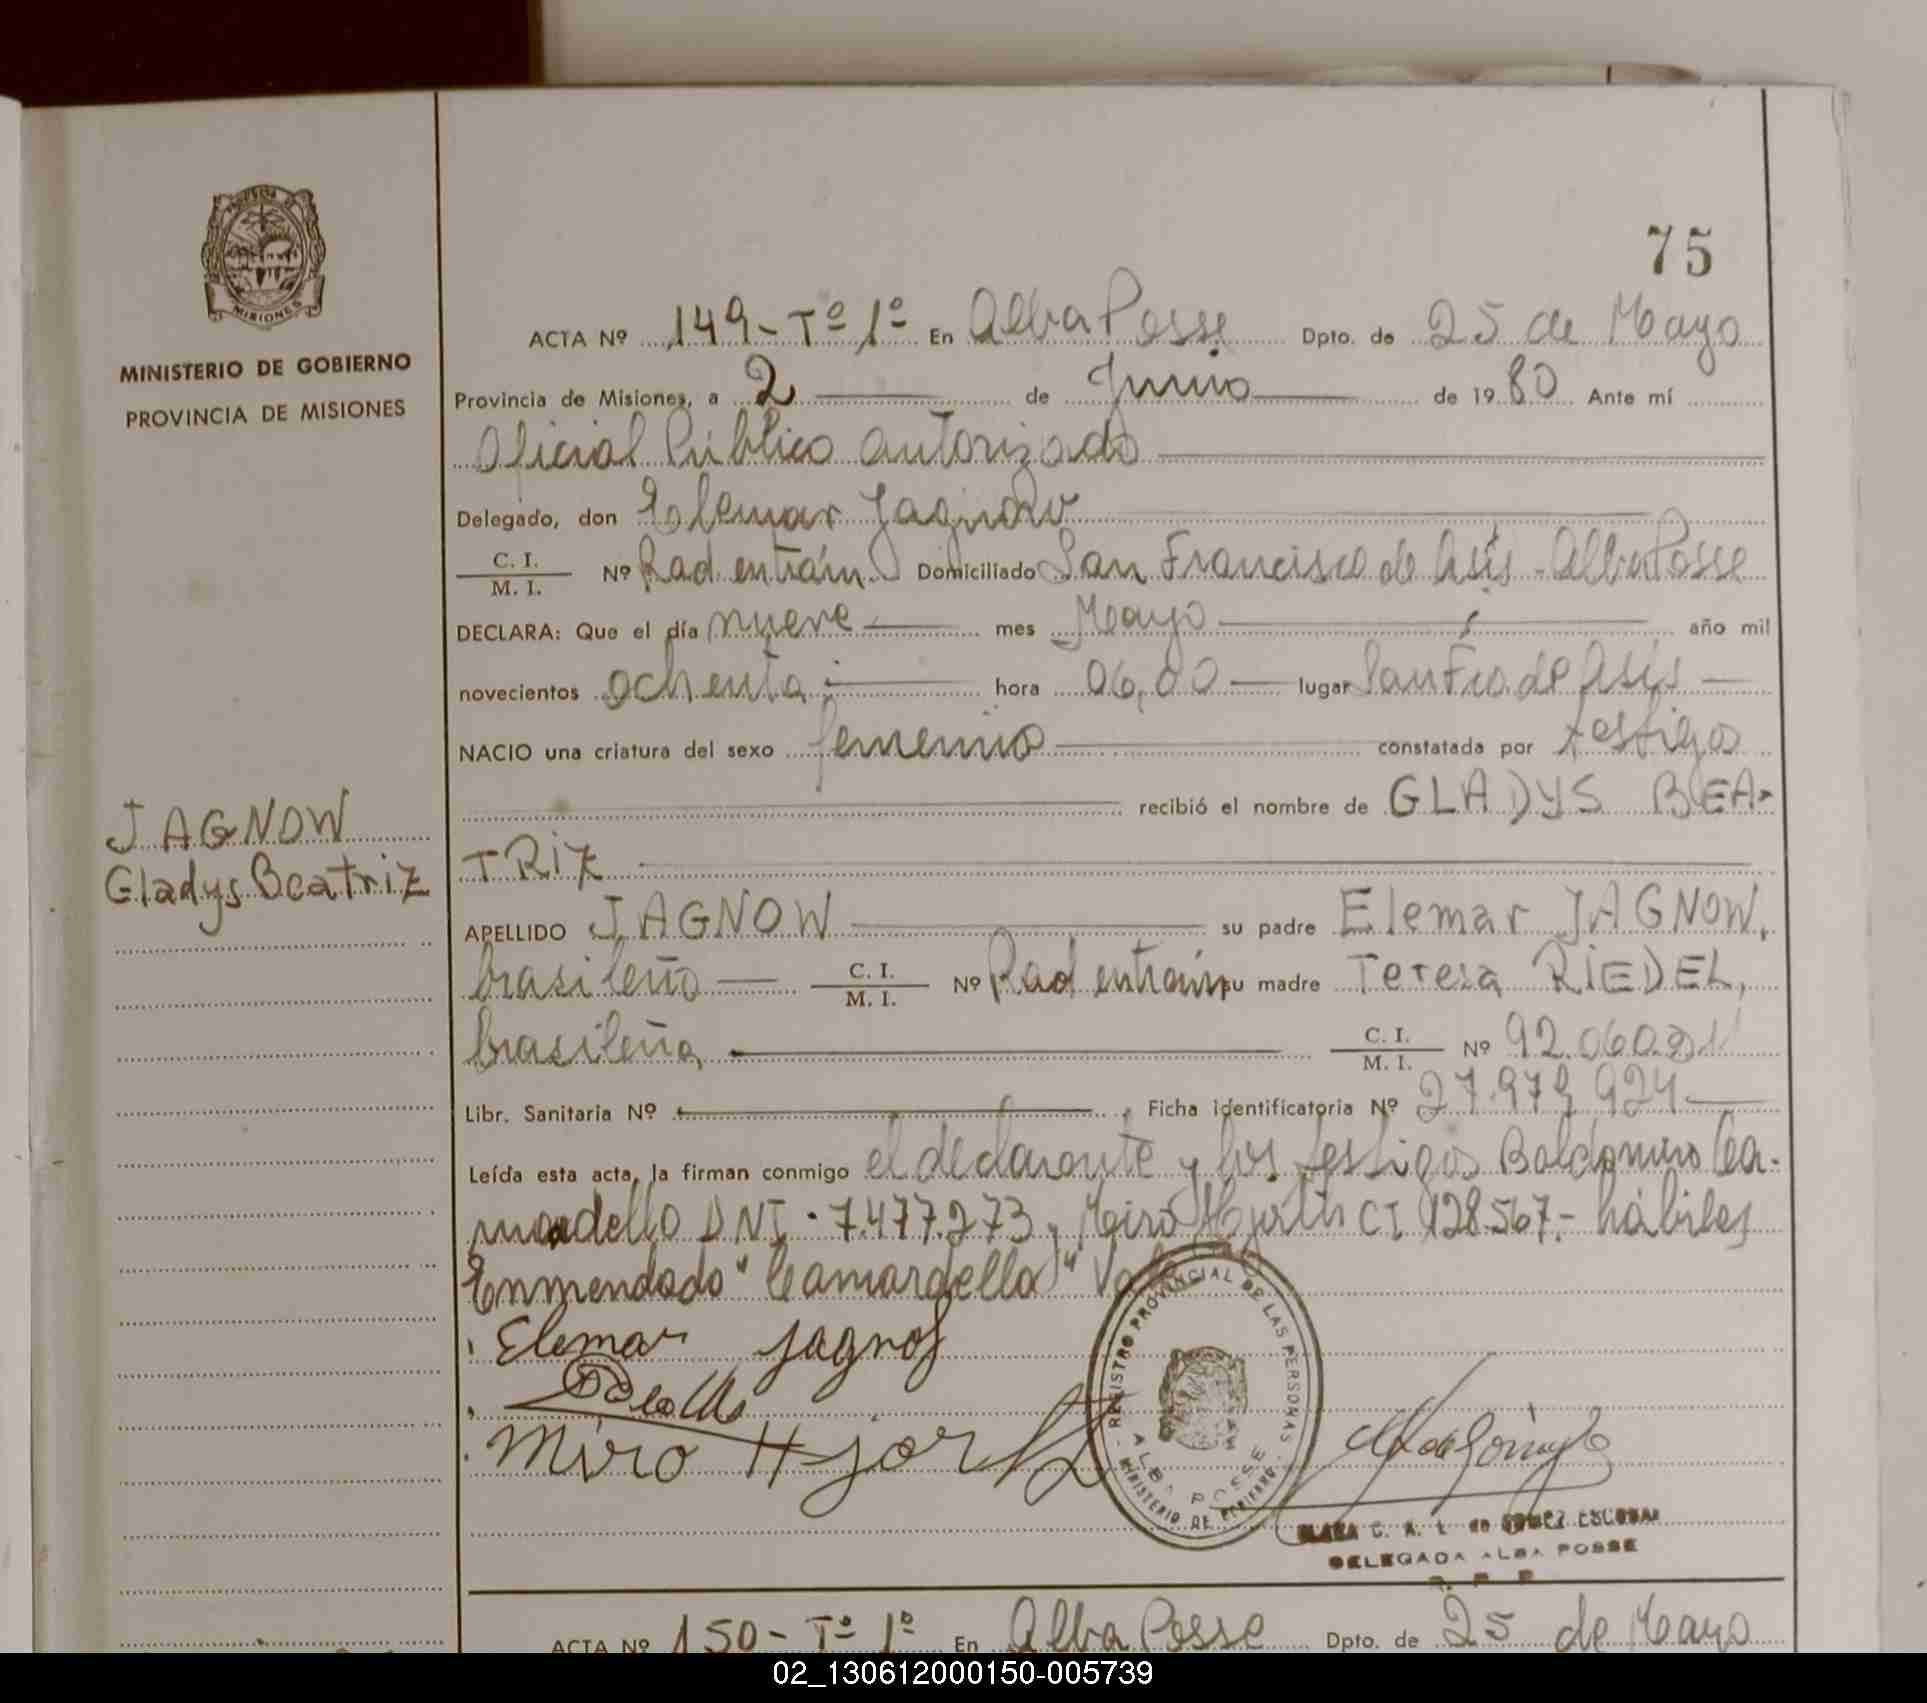 75
MISIONES
MINISTERIO DE GOBIERNO
PROVINCIA DE MISIONES
ACTA Nº 149-Tº 1º En Alba Posse Dpto. de 25 de Mayo
Provincia de Misiones, a 2 de Junio de 1980 Ante mí
Oficial Público autorizado
Delegado, don Elemar Jagnow
C. I.
M. I. Nº Rad. en trám. Domiciliado San Francisco de Asís - Alba Posse
DECLARA: Que el día nueve mes Mayo año mil
novecientos ochenta hora 06,00 lugar San Fco. de Asís
NACIO una criatura del sexo femenino constatada por testigos
recibió el nombre de GLADYS BEA-
TRIZ
JAGNOW
Gladys Beatriz
APELLIDO JAGNOW su padre Elemar JAGNOW,
brasileño C. I.
M. I. Nº Rad en trám su madre Teresa RIEDEL,
brasileña C. I.
M. I. Nº
Libr. Sanitaria Nº Ficha identificatoria Nº 27.973.924
Leída esta acta, la firman conmigo el declarante y los testigos Baldomero Ca-
mardello DNI. 7.477.273 y Miro Hjorth CI 128.567.- hábiles
Enmendado "Camardello"
Elemar Jagnof
Miro Hjorth
REGISTRO PROVINCIAL DE LAS PERSONAS
ALBA POSSE
MINISTERIO DE
C. A. L. de GOMEZ ESCOBAR
DELEGADA ALBA POSSE
ACTA Nº 150-Tº 1º En Alba Posse Dpto. de 25 de Mayo
02_130612000150-005739